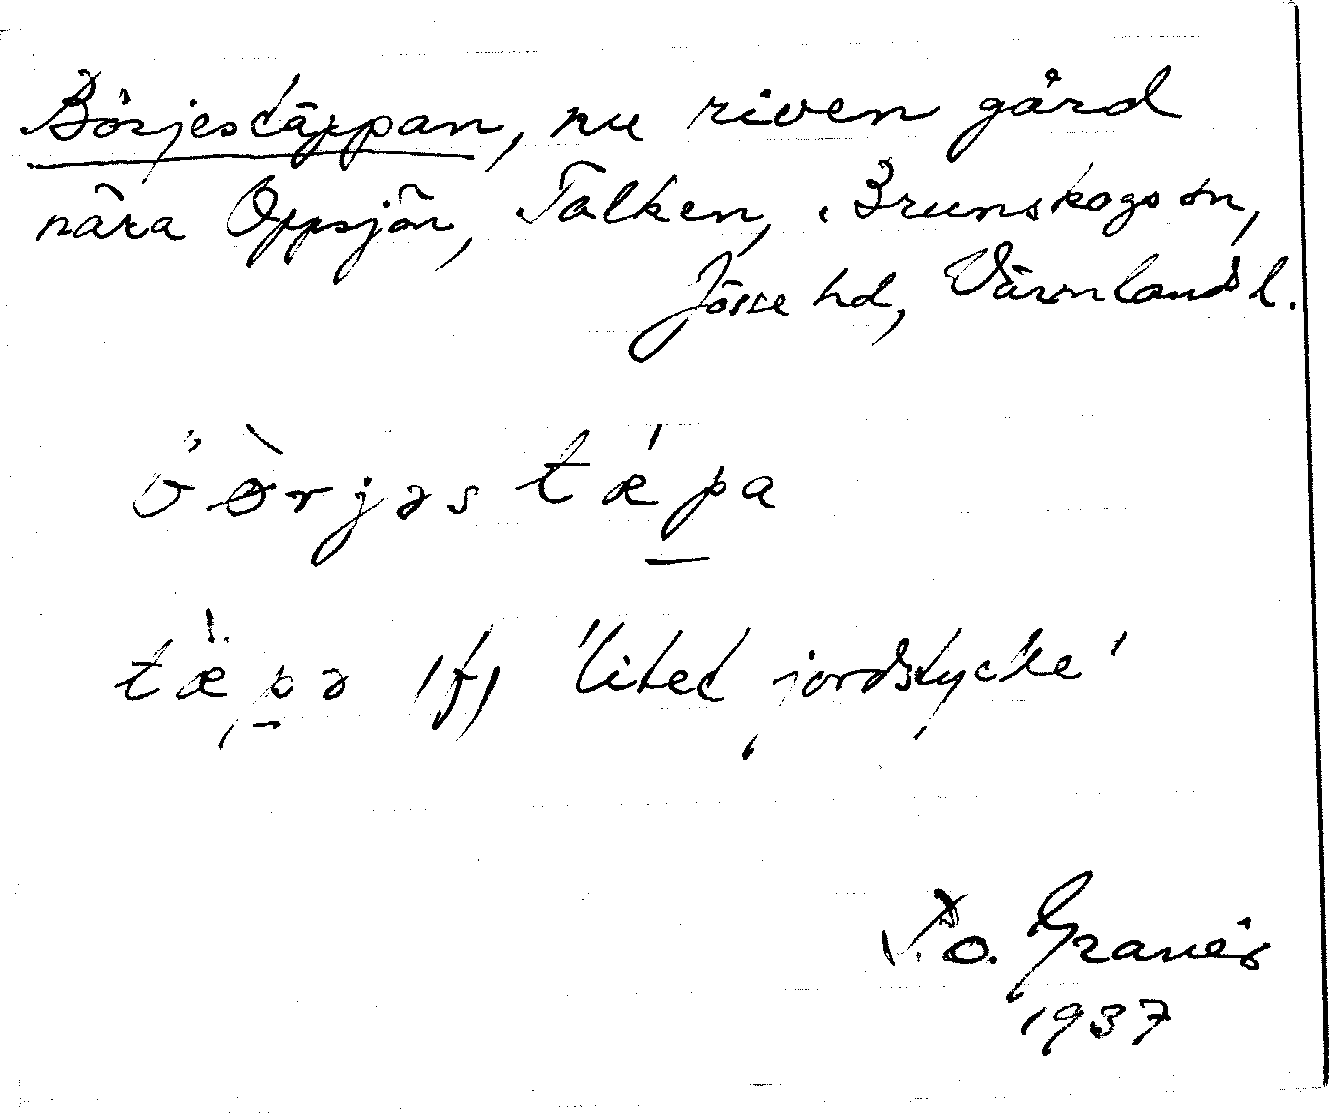 Börjestäppan, nu riven gård
nära Oppsjön, Takken, Brunskogs sn,
Jösse hd, Värmlands l.
tæpa
tæpə (f) 'litet jordstycke'
P.O. Granér
1937